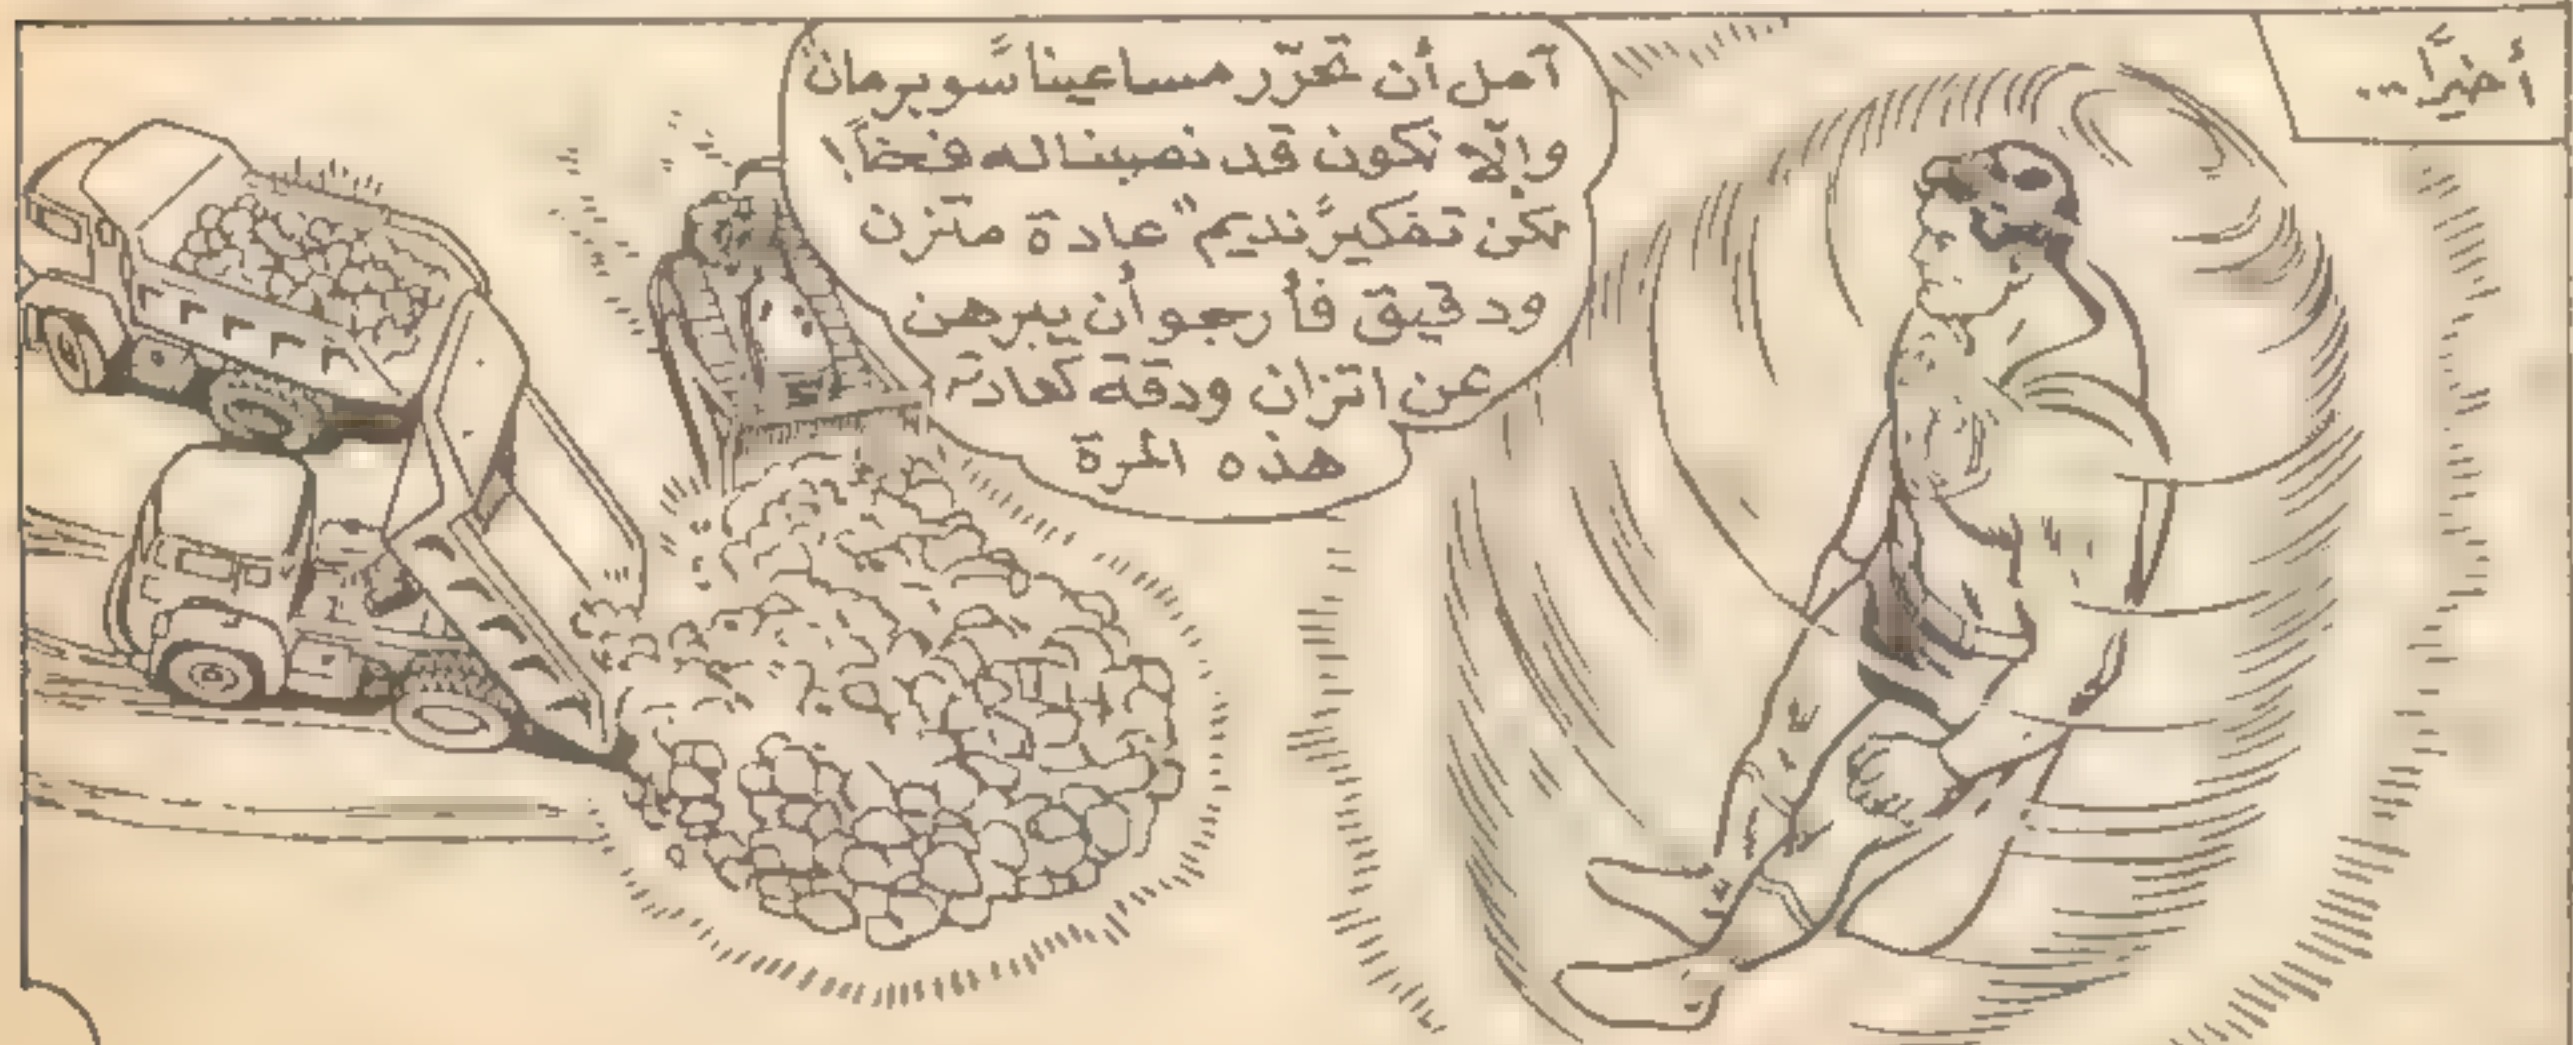 أخيرًا...
آمل أن تحرّر مساعينا "سوبرمان"
وإلّا نكون قد نصبنا له فخًا!
لكن تفكير "نديم" عادة متزن
ودقيق فأرجو أن يبرهن
عن اتزان ودقة كعادته
هذه المرة